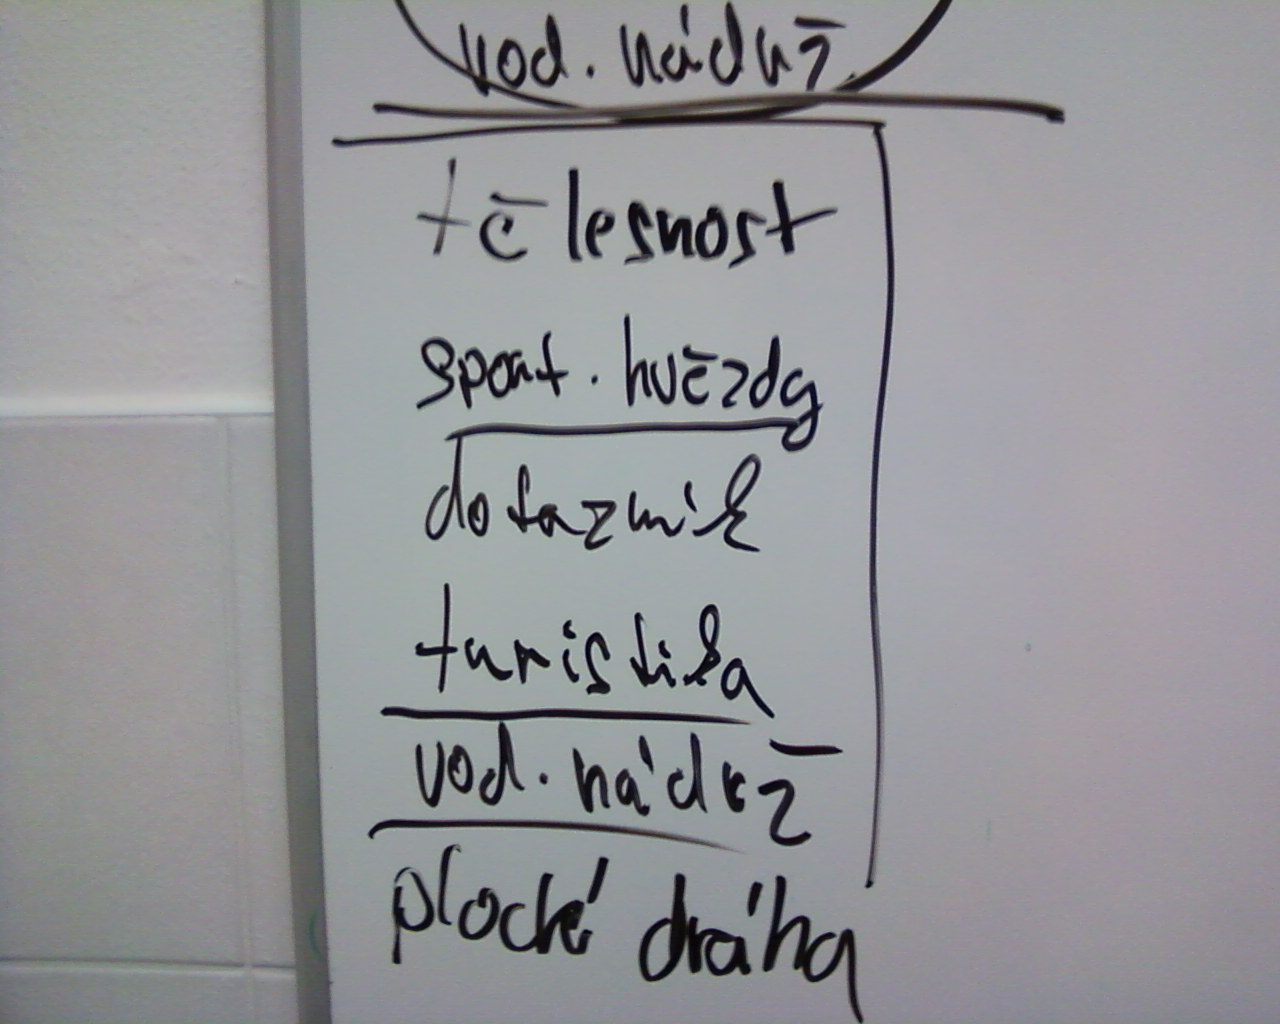 vod. nádrž
tělesnost
sport. hvězdy
dotazník
turistika
vod. nádrž
ploché dráha